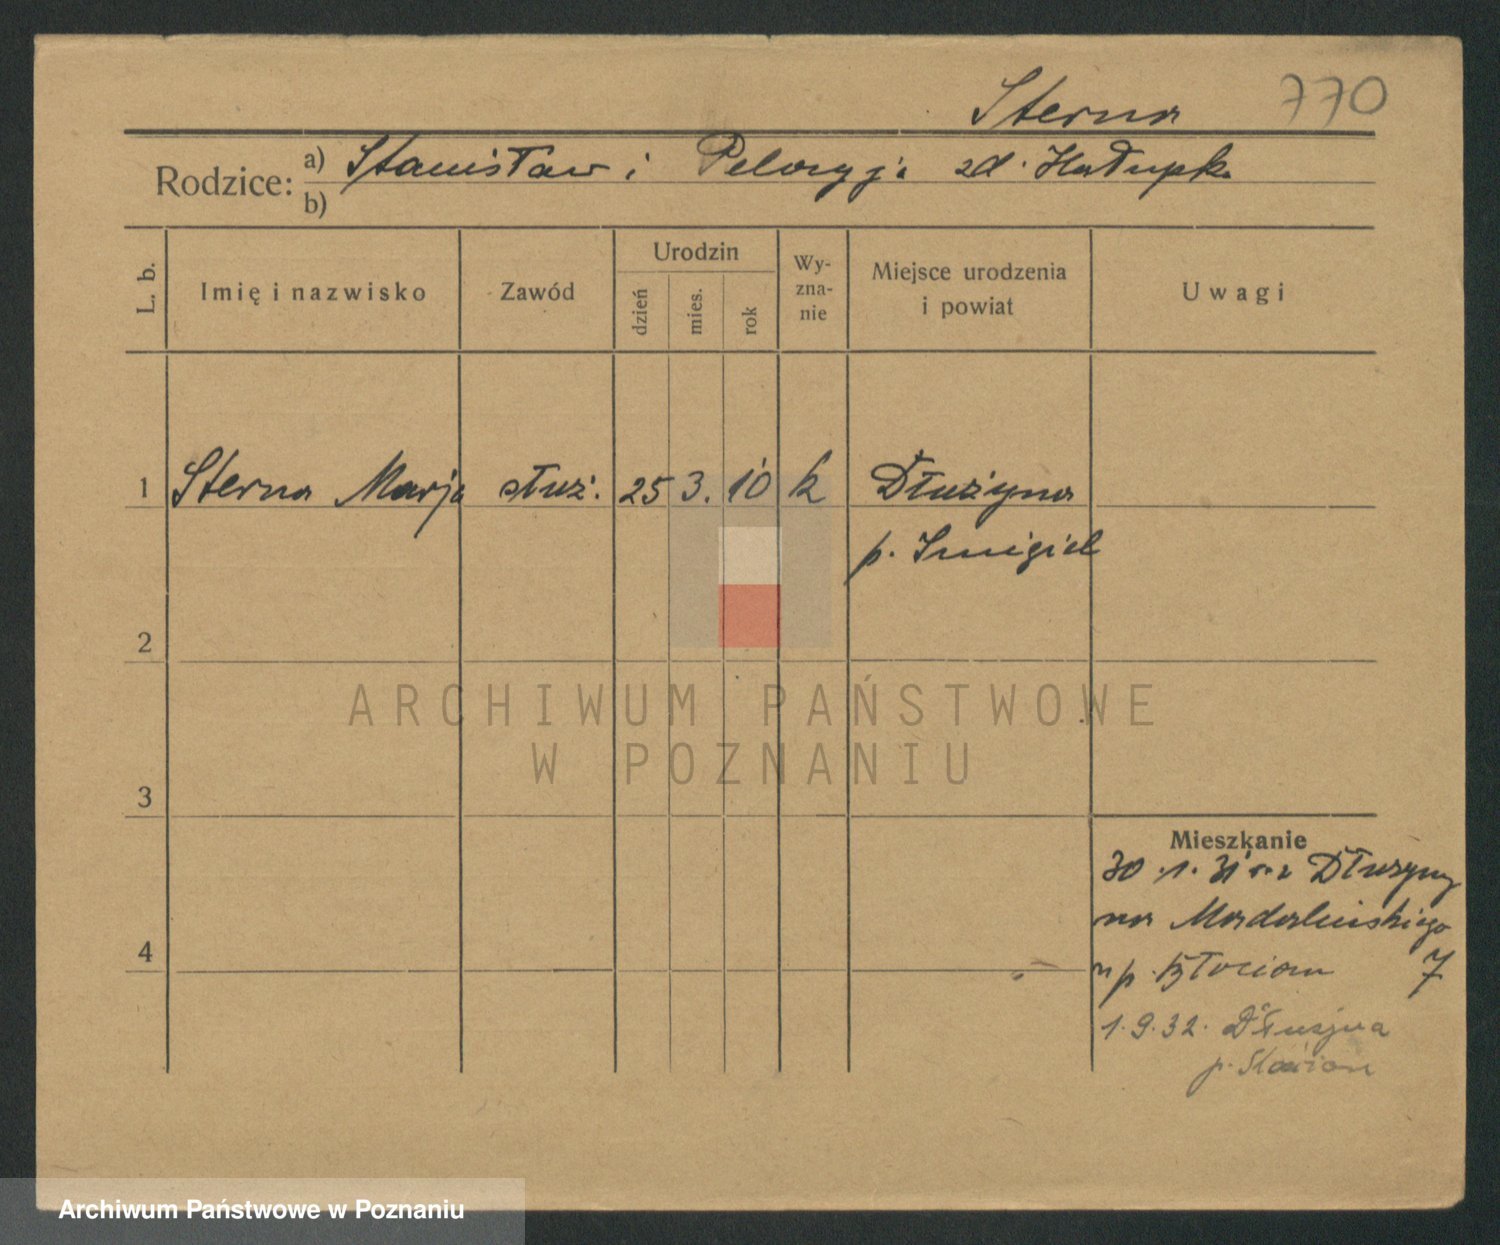 Sterna 770
Rodzice: a) Stanisław i Pelagja zd.
b)
L. b.
Imię i nazwisko
Zawód
Urodzin
dzień
mies.
rok
Wy-
zna-
nie
Miejsce urodzenia
i powiat
Uwagi
1 Sterna Marja służ. 25 3. 10 k Dłużyna
p. Smigiel
2
ARCHIWUM PAŃSTWOWE
W POZNANIU
3
Mieszkanie
30.1.31 Dłużyny
na Madalińskiego
7
4
1.9.32. Dłużyna
p.
Archiwum Państwowe w Poznaniu